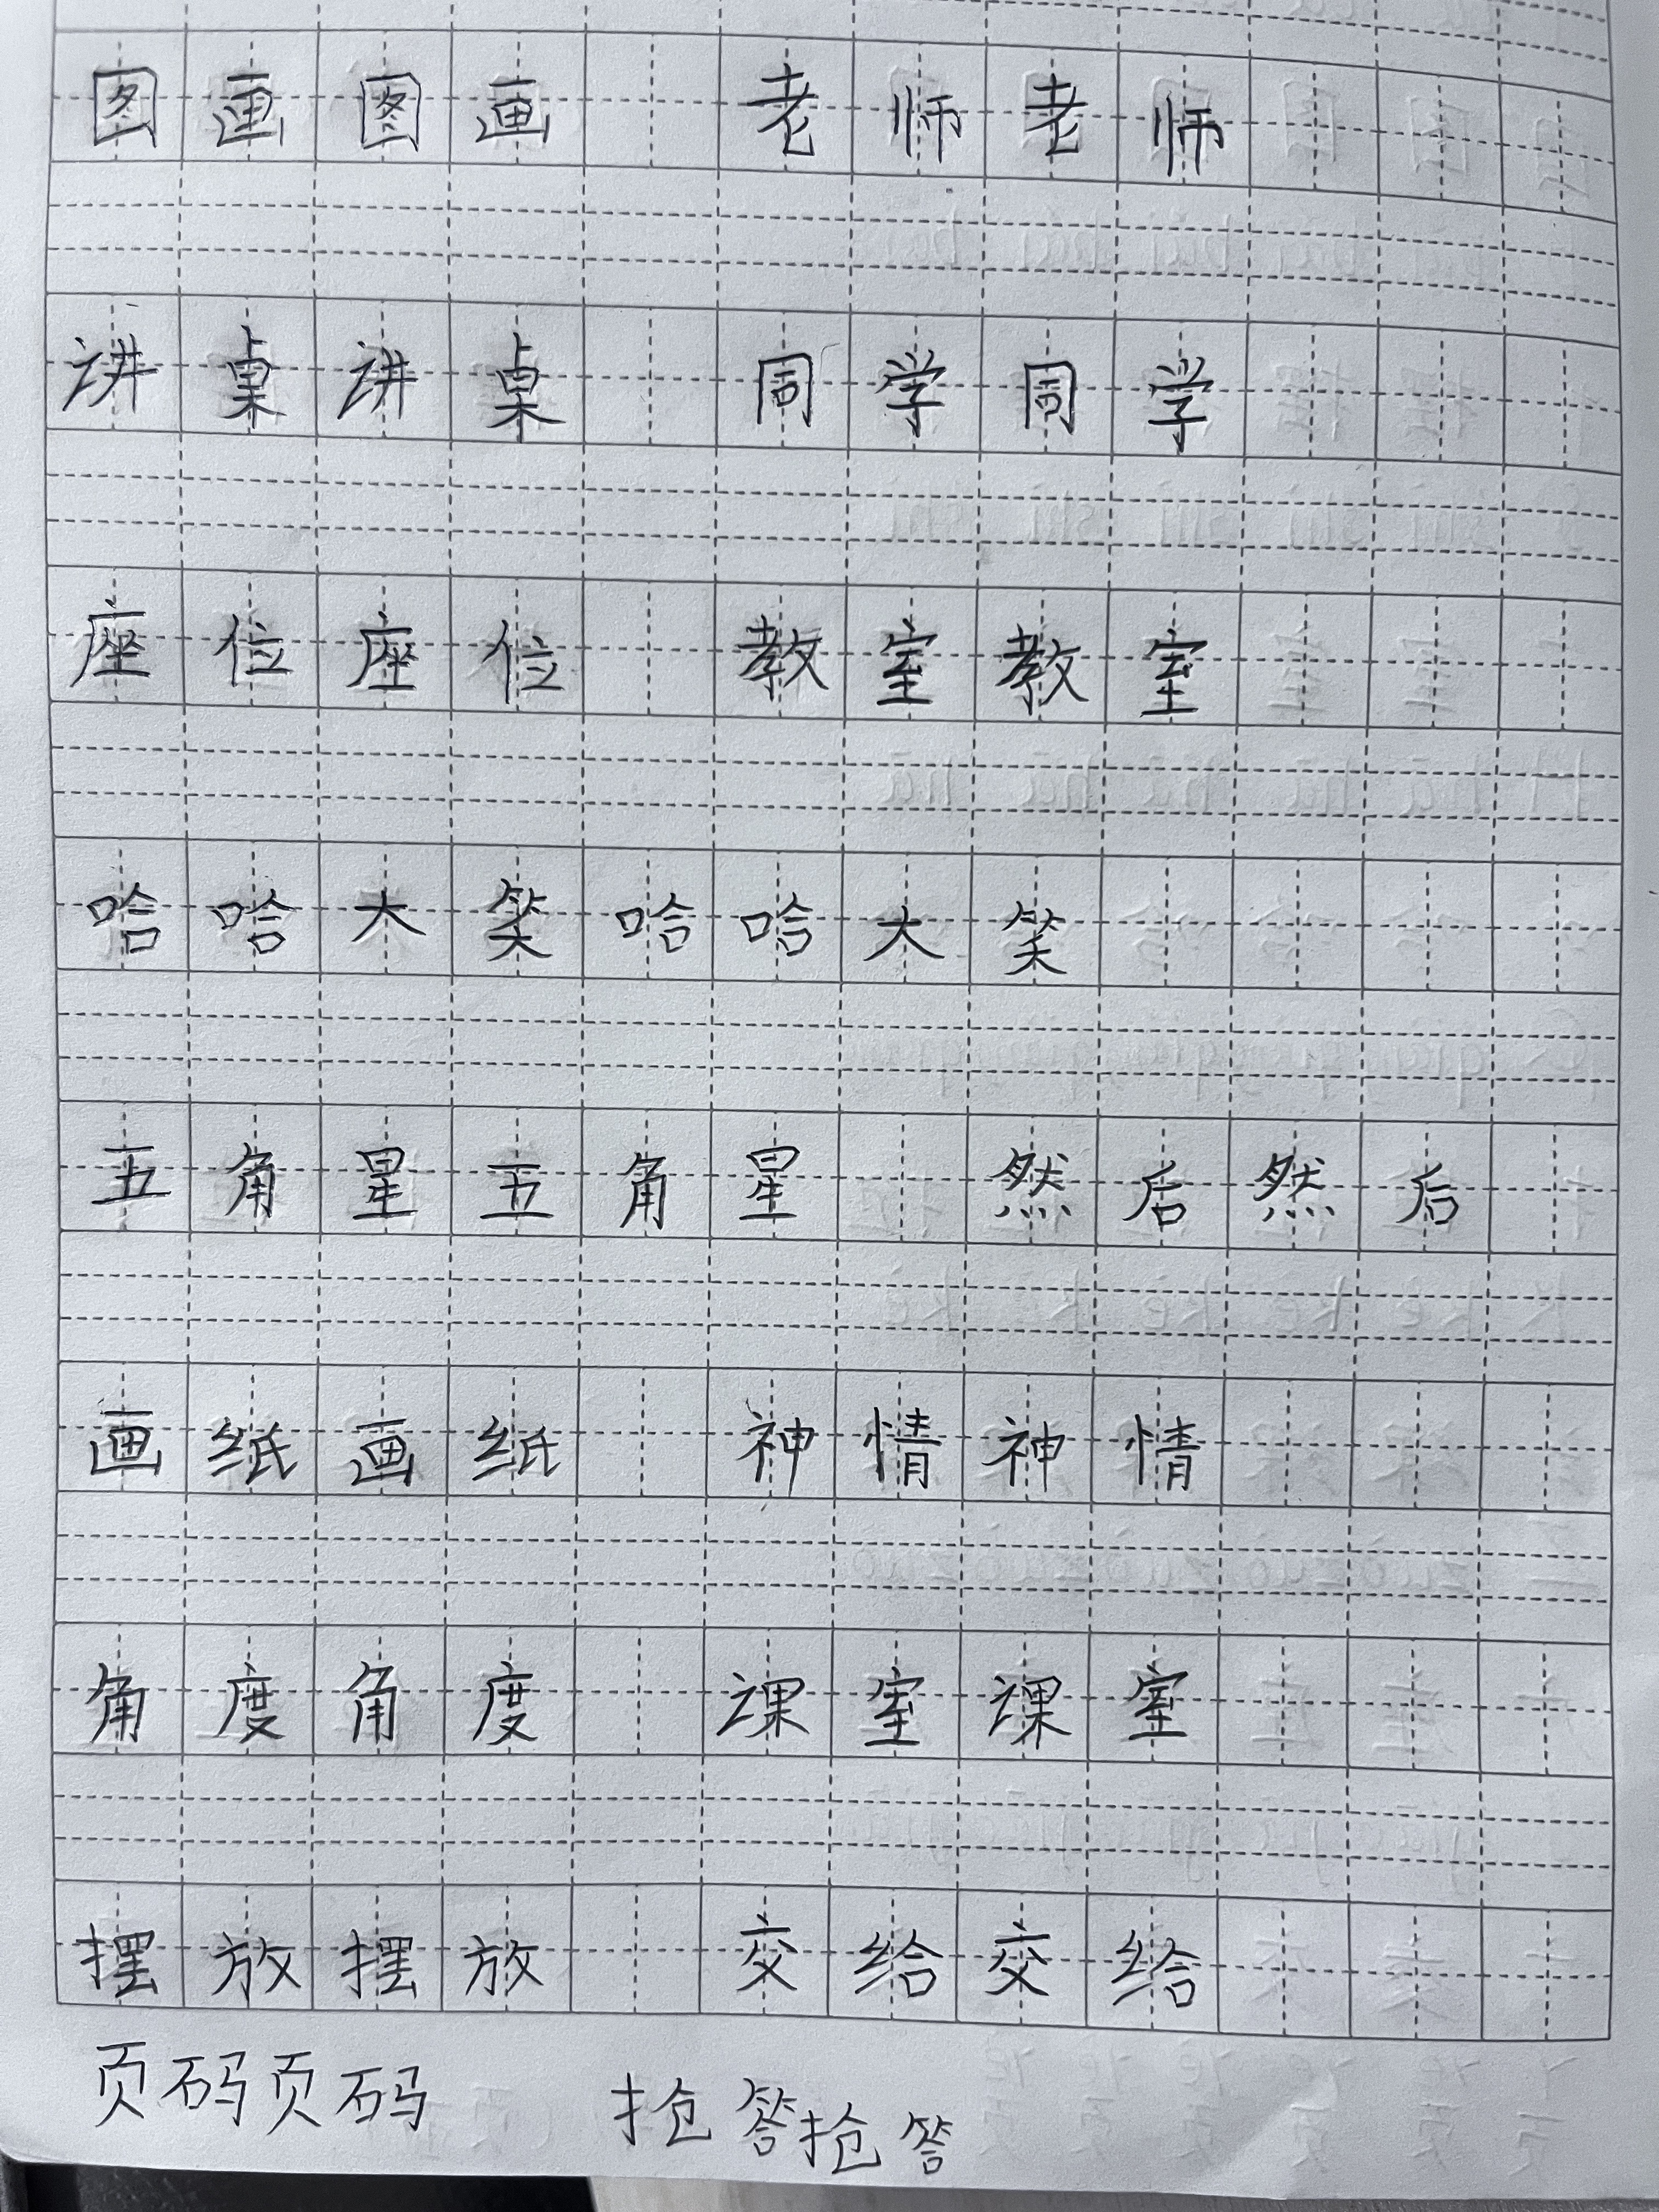 图画图画 老师老师
讲桌讲桌 同学同学
座位座位 教室教室
哈哈大笑哈哈大笑
五角星五角星 然后然后
画纸画纸 神情神情
角度角度 课室课室
摆放摆放 交给交给
页码页码 抢答抢答